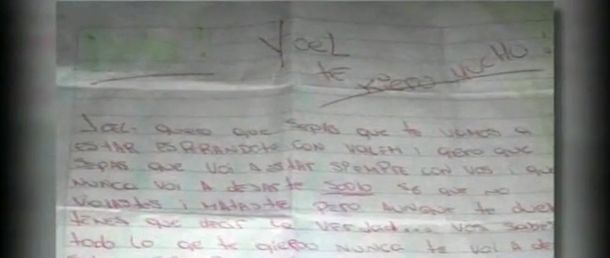 Yoel
te quiero mucho
Joel: quiero que sepas que te vamos a
ESTAR ESPERANDOTE CON VALEN i qiero que
sepas que voi A estar siempre con vos i que
NUNCA VOI A DEJARte Solo se que no
i MATASTE pero AUNQUE te duel
tenes que decir la verdad... vos sabes
todo lo qe te qiero NUNCA te voi a de